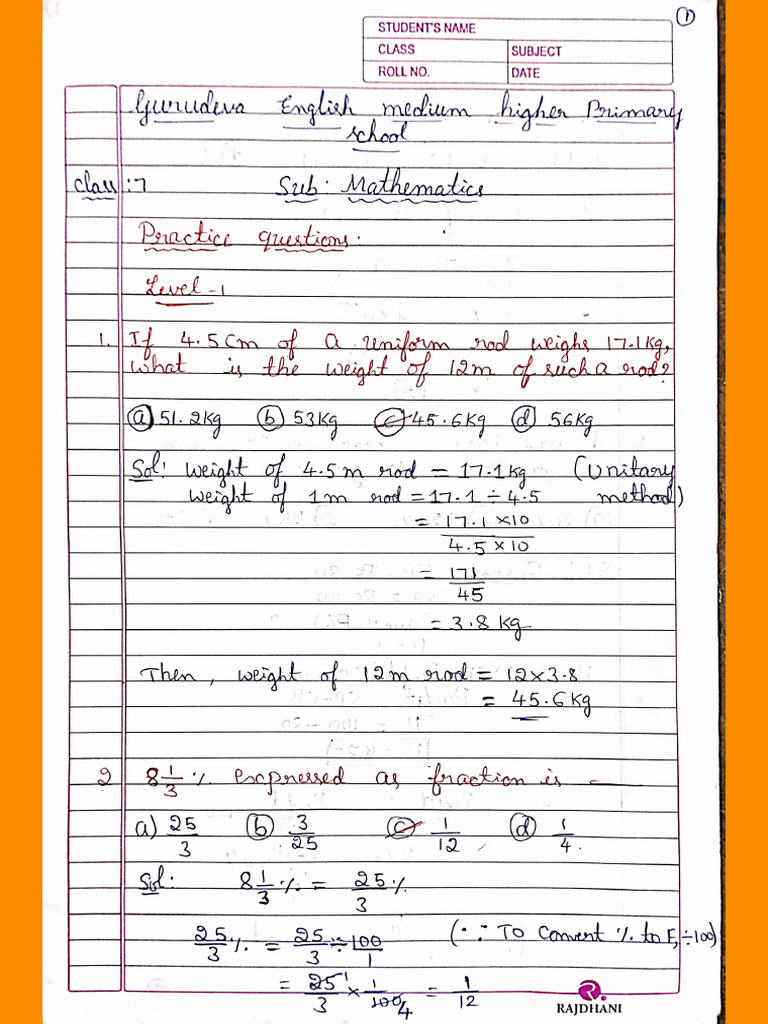 1
STUDENT'S NAME
CLASS SUBJECT
ROLL NO. DATE
Gurudeva English medium higher Primary
school
Class : 7 Sub: Mathematics
Practice questions:
Level-1
1. If 4.5cm of a uniform rod weighs 17.1kg,
what is the weight of 12m of such a rod?
a) 51.2kg b) 53kg c) 45.6kg d) 56kg
Sol: weight of 4.5m rod = 17.1kg (Unitary
weight of 1m rod = 17.1 ÷ 4.5 method)
= 17.1 × 10
4.5 × 10
= 171
45
= 3.8 kg
Then, weight of 12m rod = 12 × 3.8
= 45.6kg
2 8 1/3 % expressed as fraction is —
a) 25/3 b) 3/25 c) 1/12 d) 1/4.
Sol: 8 1/3 % = 25/3 %
25/3 % = 25/3 ÷ 100/1 (∵ To convert % to F, ÷100)
= 25/3 1 × 1/100 4 = 1/12
RAJDHANI